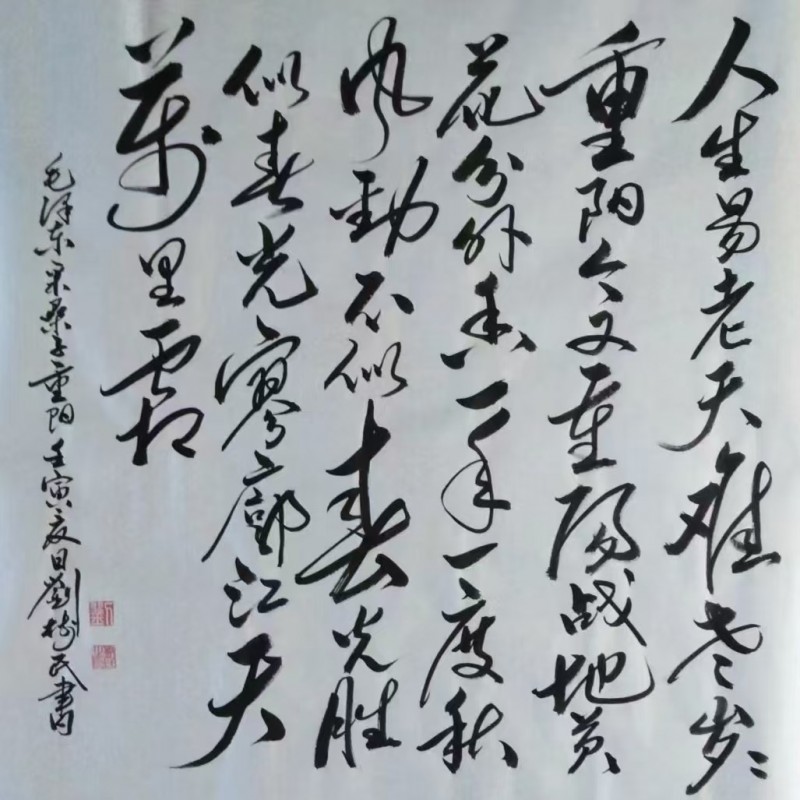 人生易老天难老岁々
重阳今又重陽战地黄
花分外香一年一度秋
风劲不似春光胜
似春光寥廓江天
萬里霜
毛泽东采桑子重阳 壬寅夏日劉树民書